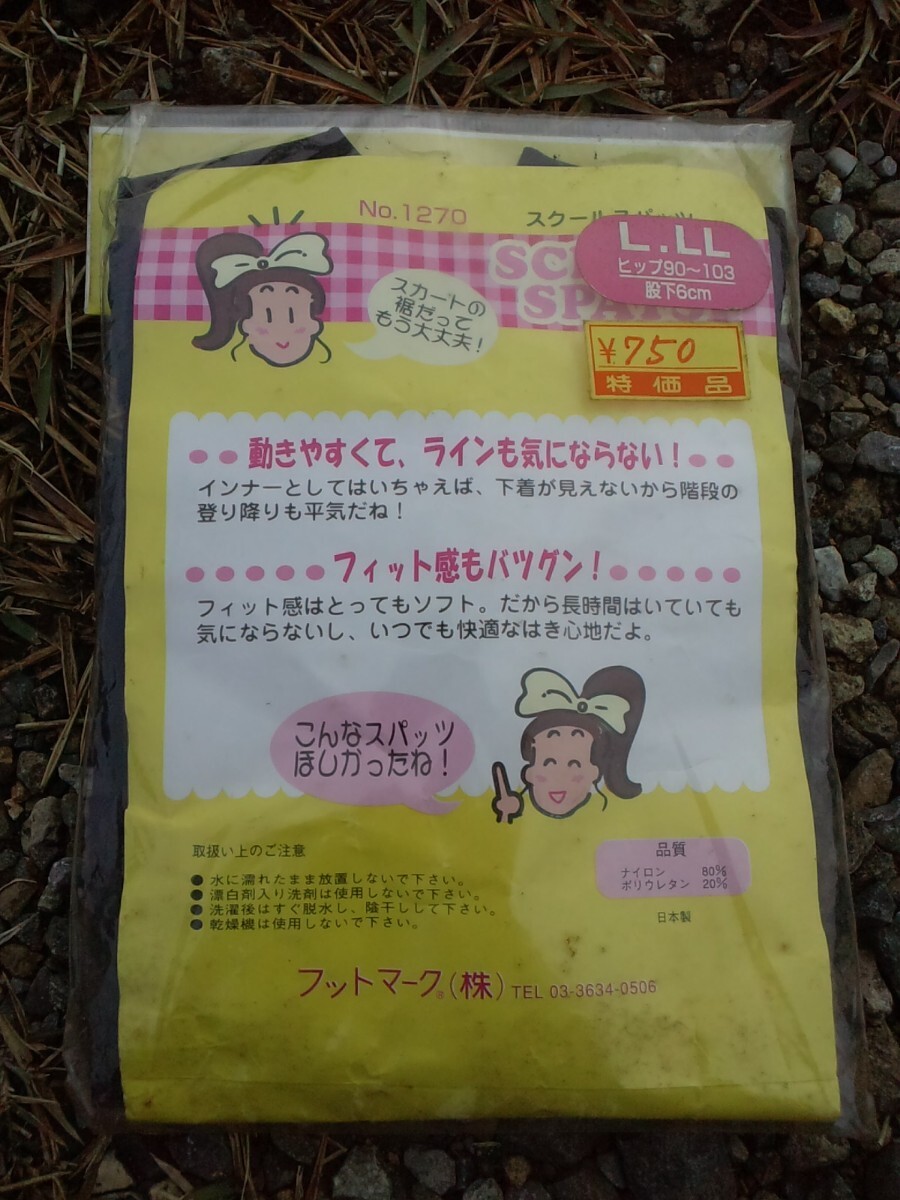 No.1270
スクールスパッツ
L.LL
ヒップ90〜103
股下6cm
スカートの
裾だって
もう大丈夫!
¥750
特価品
動きやすくて、ラインも気にならない!
インナーとしてはいちゃえば、下着が見えないから階段の
登り降りも平気だね!
フィット感もバツグン!
フィット感はとってもソフト。だから長時間はいていても
気にならないし、いつでも快適なはき心地だよ。
こんなスパッツ
ほしかったね!
取扱い上のご注意
●水に濡れたまま放置しないで下さい。
●漂白剤入り洗剤は使用しないで下さい。
●洗濯後はすぐ脱水し、陰干しして下さい。
●乾燥機は使用しないで下さい。
品質
ナイロン 80%
ポリウレタン 20%
日本製
フットマーク®(株) TEL 03-3634-0506